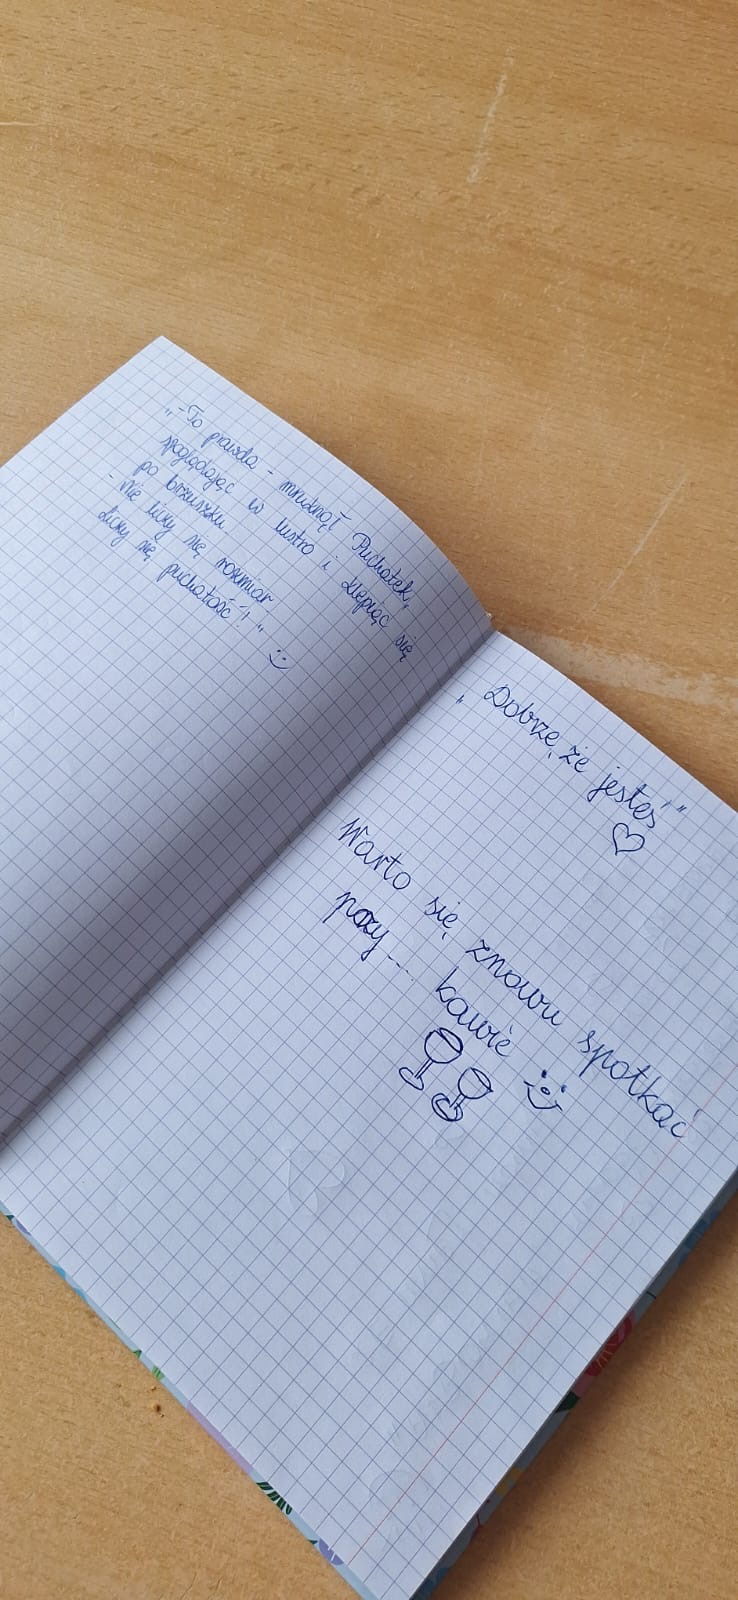 „-To prawda - mruknął Puchatek,
spoglądając w lustro i klepiąc się
po brzuszku.
- Nie liczy się rozmiar
liczy się puchatość! "
„ Dobrze, że jesteś "
Warto się znowu spotkać
przy.... kawie